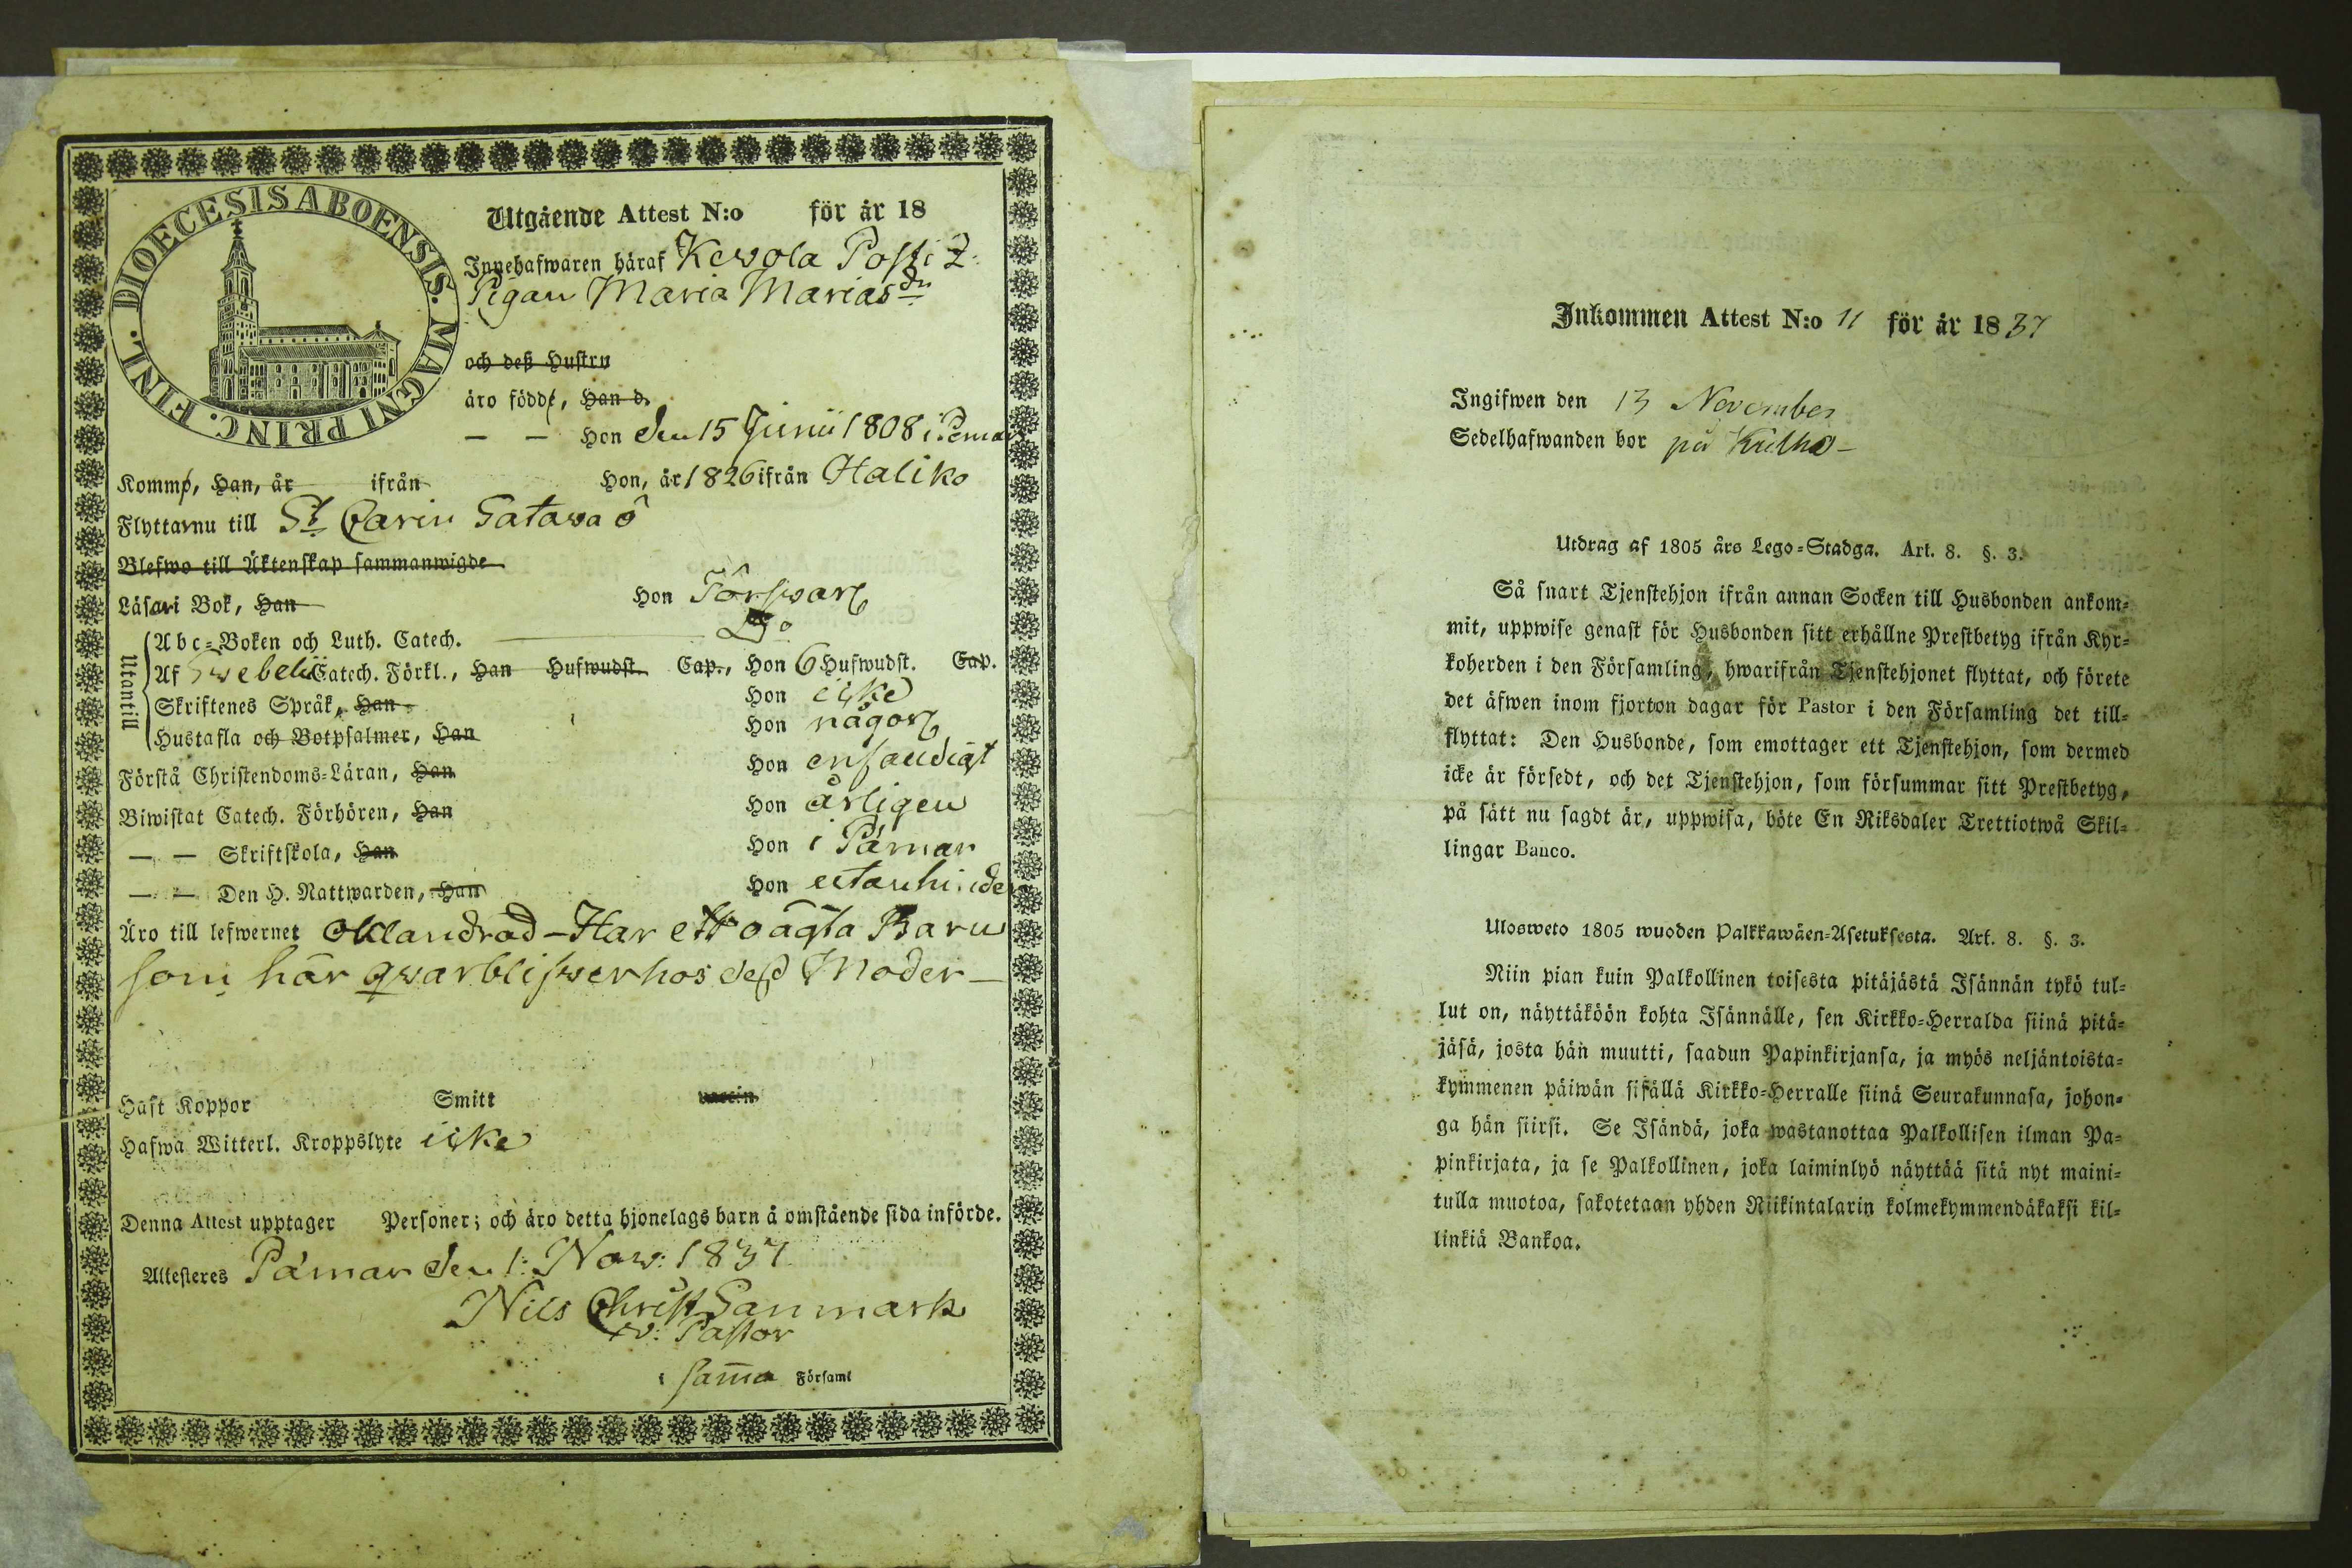 DIOECESIS ABOENSIS. MAGNI PRINC. FINL.
Utgående Attest N:o för år 18
Innehafwaren häraf Kewola Posti
Pigan Maria Mariasdr
och deß Hustru
äro födde, Han d.
— — Hon den 15 Junii 1808 i Pemar
Komme, Han, år ifrån Hon, år 1826 ifrån Haliko
Flyttar nu till St Carin Satawa ö
Blefwo till Äktenskap sammanwigde
Läsa i Bok, Han Hon Förswarl
Utantill
Abc-Boken och Luth. Catech. Do
Af Swebelii Catech. Förkl., Han Hufwudst. Cap., Hon 6 Hufwudst. Cap.
Skriftenes Språk, Han Hon icke
Hustafla och Botpsalmer, Han Hon någorl
Förstå Christendoms-Läran, Han Hon enfaudigt
Biwistat Catech. Förhören, Han Hon årligen
— — Skriftskola, Han Hon i Pämar
— — Den H. Nattwarden, Han Hon utan hinder
Äro till lefwernet oklandrad – Har ett oägta Barn
som här qwarblifwer hos deß Moder —
Haft Koppor Smitt vaccin
Hafwa Witterl. Kroppslyte icke
Denna Attest upptager Personer; och äro detta hjonelags barn å omstående sida införde.
Attesteres Pämar den 1: Now: 1837
Nils Christ Sanmark
v: Pastor
i samma Församl
Inkommen Attest N:o 11 för år 1837
Ingifwen den 13 November
Sedelhafwanden bor på
Utdrag af 1805 års Lego-Stadga. Art. 8. §. 3.
Så snart Tjenstehjon ifrån annan Socken till Husbonden ankom-
mit, uppwise genast för Husbonden sitt erhållne Prestbetyg ifrån Kyr-
koherden i den Församling, hwarifrån Tjenstehjonet flyttat, och förete
det äfwen inom fjorton dagar för Pastor i den Församling det till-
flyttat: Den Husbonde, som emottager ett Tjenstehjon, som dermed
icke är försedt, och det Tjenstehjon, som försummar sitt Prestbetyg,
på sätt nu sagdt är, uppwisa, böte En Riksdaler Trettiotwå Skil-
lingar Banco.
Ulosweto 1805 wuoden Palkkawäen-Asetuksesta. Art. 8. §. 3.
Niin pian kuin Palkollinen toisesta pitäjästä Isännän tykö tul-
lut on, näyttäköön kohta Isännälle, sen Kirkko-Herralda siinä pitä-
jäsä, josta hän muutti, saadun Papinkirjansa, ja myös neljäntoista-
kymmenen päiwän sisällä Kirkko-Herralle siinä Seurakunnasa, johon-
ga hän siirsi. Se Isändä, joka wastanottaa Palkollisen ilman Pa-
pinkirjata, ja se Palkollinen, joka laiminlyö näyttää sitä nyt maini-
tulla muotoa, sakotetaan yhden Riikintalarin kolmekymmendäkaksi kil-
linkiä Bankoa.